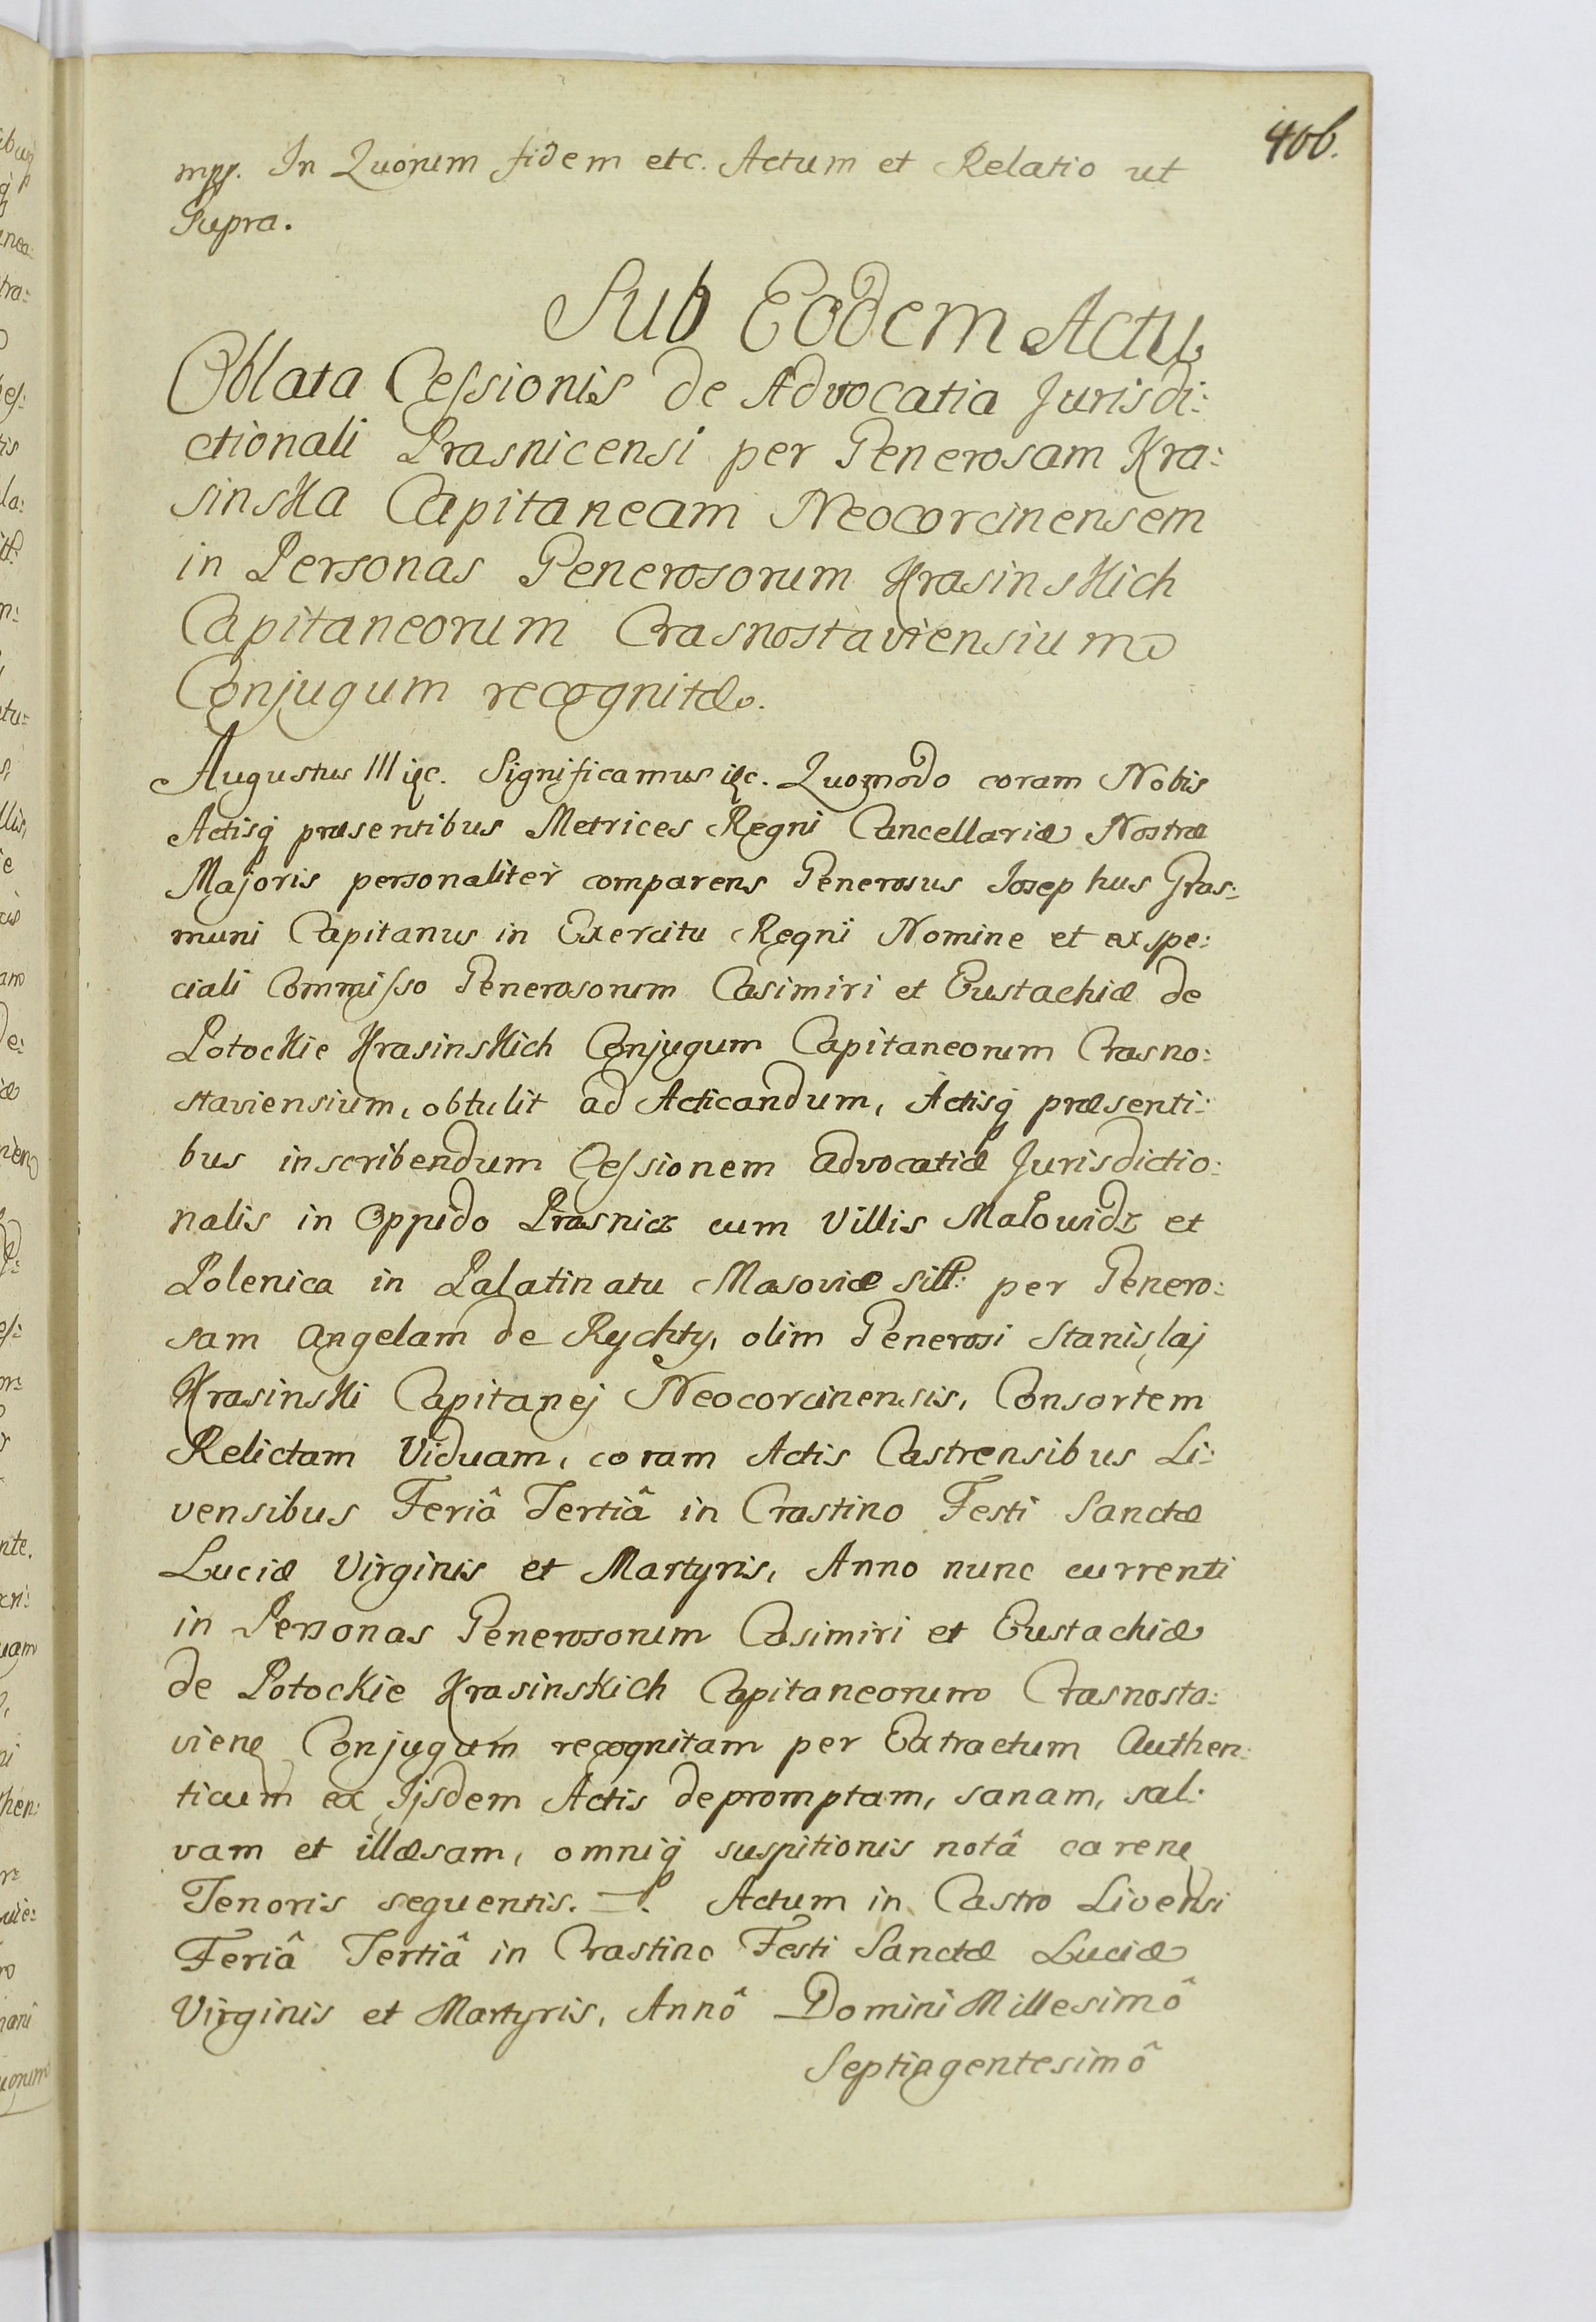 406.
mpp. In Quorum fidem etc. Actum et Relatio ut
Supra.
Sub Eodem Actu
Oblata Cessionis de Advocatia Jurisdi:
ctionali Prasnicensi per Generosam Kra:
sinska Capitaneam Neocorcinensem
in Personas Generosorum Krasinskich
Capitaneorum Crasnostaviensium
Conjugum recognitæ.
Augustus III etc. Significamus etc. Quomodo coram Nobis
Actisq præsentibus Metrices Regni Cancellariæ Nostræ
Majoris personaliter comparens Generosus Josephus Gras:
muni Capitanus in Exercitu Regni Nomine et ex spe:
ciali Commisso Generosorum Casimiri et Eustachiæ de
Potockie Krasinskich Conjugum Capitaneorum Crasno:
staviensium, obtulit ad Acticandum, Actisq præsenti:
bus inscribendum Cessionem advocatiæ Jurisdictio:
nalis in Oppido Prasnicz cum Villis Małowidz et
Polenica in Palatinatu Masoviæ sitt: per Genero:
sam Angelam de Rychty, olim Generosi Stanislaj
Krasinski Capitanej Neocorcinensis, Consortem
Relictam Viduam, coram Actis Castrensibus Li:
vensibus Feriâ Tertiâ in Crastino Festi Sanctæ
Luciæ Virginis et Martyris, Anno nunc currenti
in Personas Generosorum Casimiri et Eustachiæ
de Potockie Krasinskich Capitaneorum Crasnosta:
vien Conjugum recognitam per Extractum Authen:
ticum ex Ijsdem Actis depromptam, sanam, sal:
vam et illæsam, omniq suspitionis notâ caren
Tenoris sequentis. —. Actum in Castro Livensi
Feriâ Tertiâ in Crastino Festi Sanctæ Luciæ
Virginis et Martyris, Annô Domini Millesimô
Septingentesimô